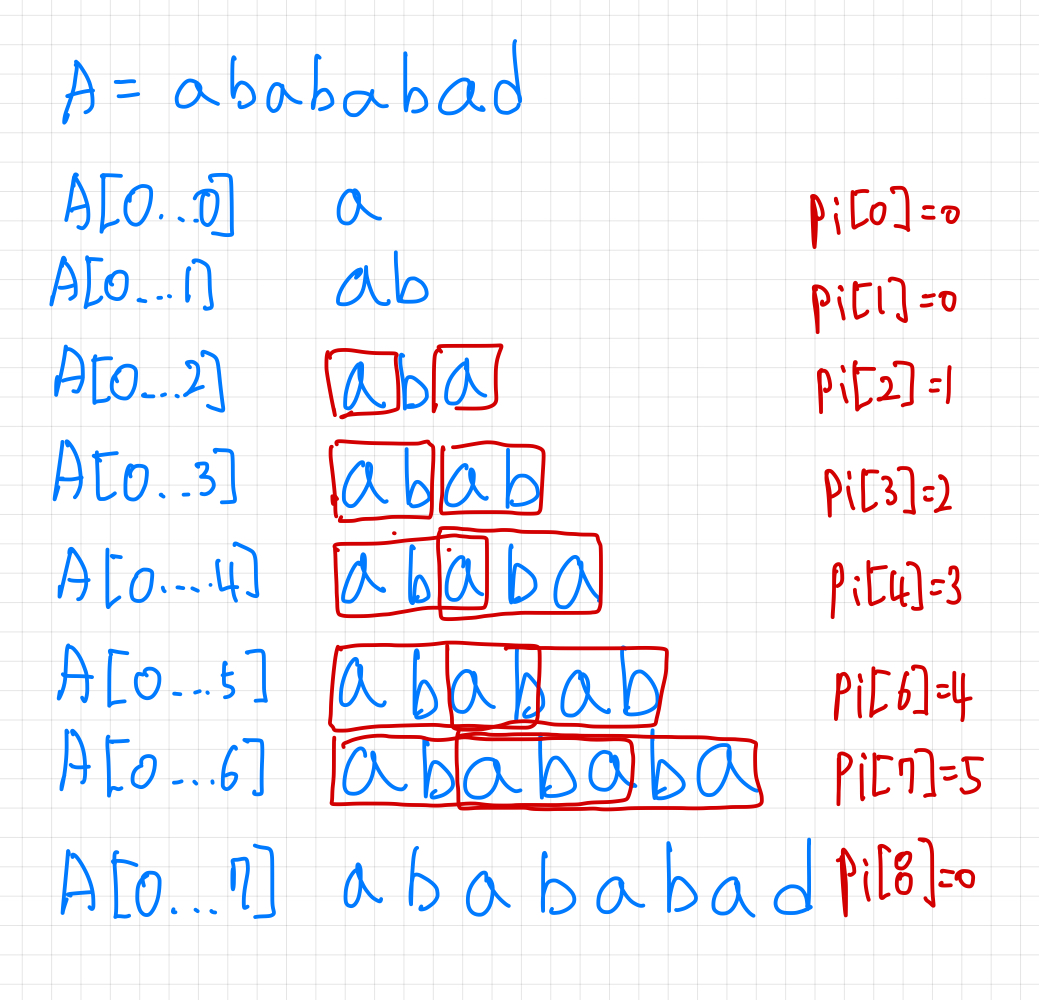 A = abababad
A[0...0] a pi[0]=0
A[0...1] ab pi[1]=0
A[0...2] aba pi[2]=1
A[0...3] abab pi[3]=2
A[0....4] ababa pi[4]=3
A[0...5] ababab pi[6]=4
A[0...6] abababa pi[7]=5
A[0...7] abababad pi[8]=0